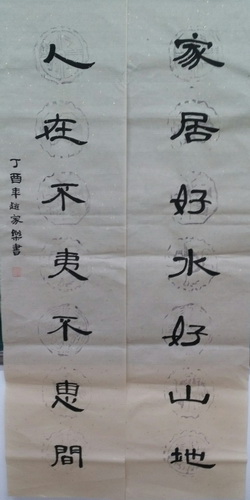 家居好水好山地
人在不夷不惠間
丁酉年趙家樂書